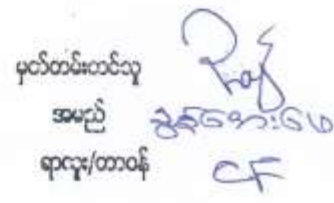 မှတ်တမ်းတင်သူ
အမည် ခွန်အေးမေ
ရာထူး/တာဝန် CF